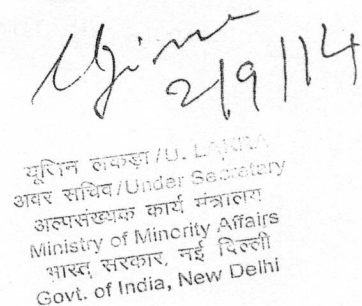 2/9/14
यूजिन लकड़ा/U. LAKRA
अवर सचिव/Under Secretary
अल्पसंख्यक कार्य मंत्रालय
Ministry of Minority Affairs
भारत सरकार, नई दिल्ली
Govt. of India, New Delhi